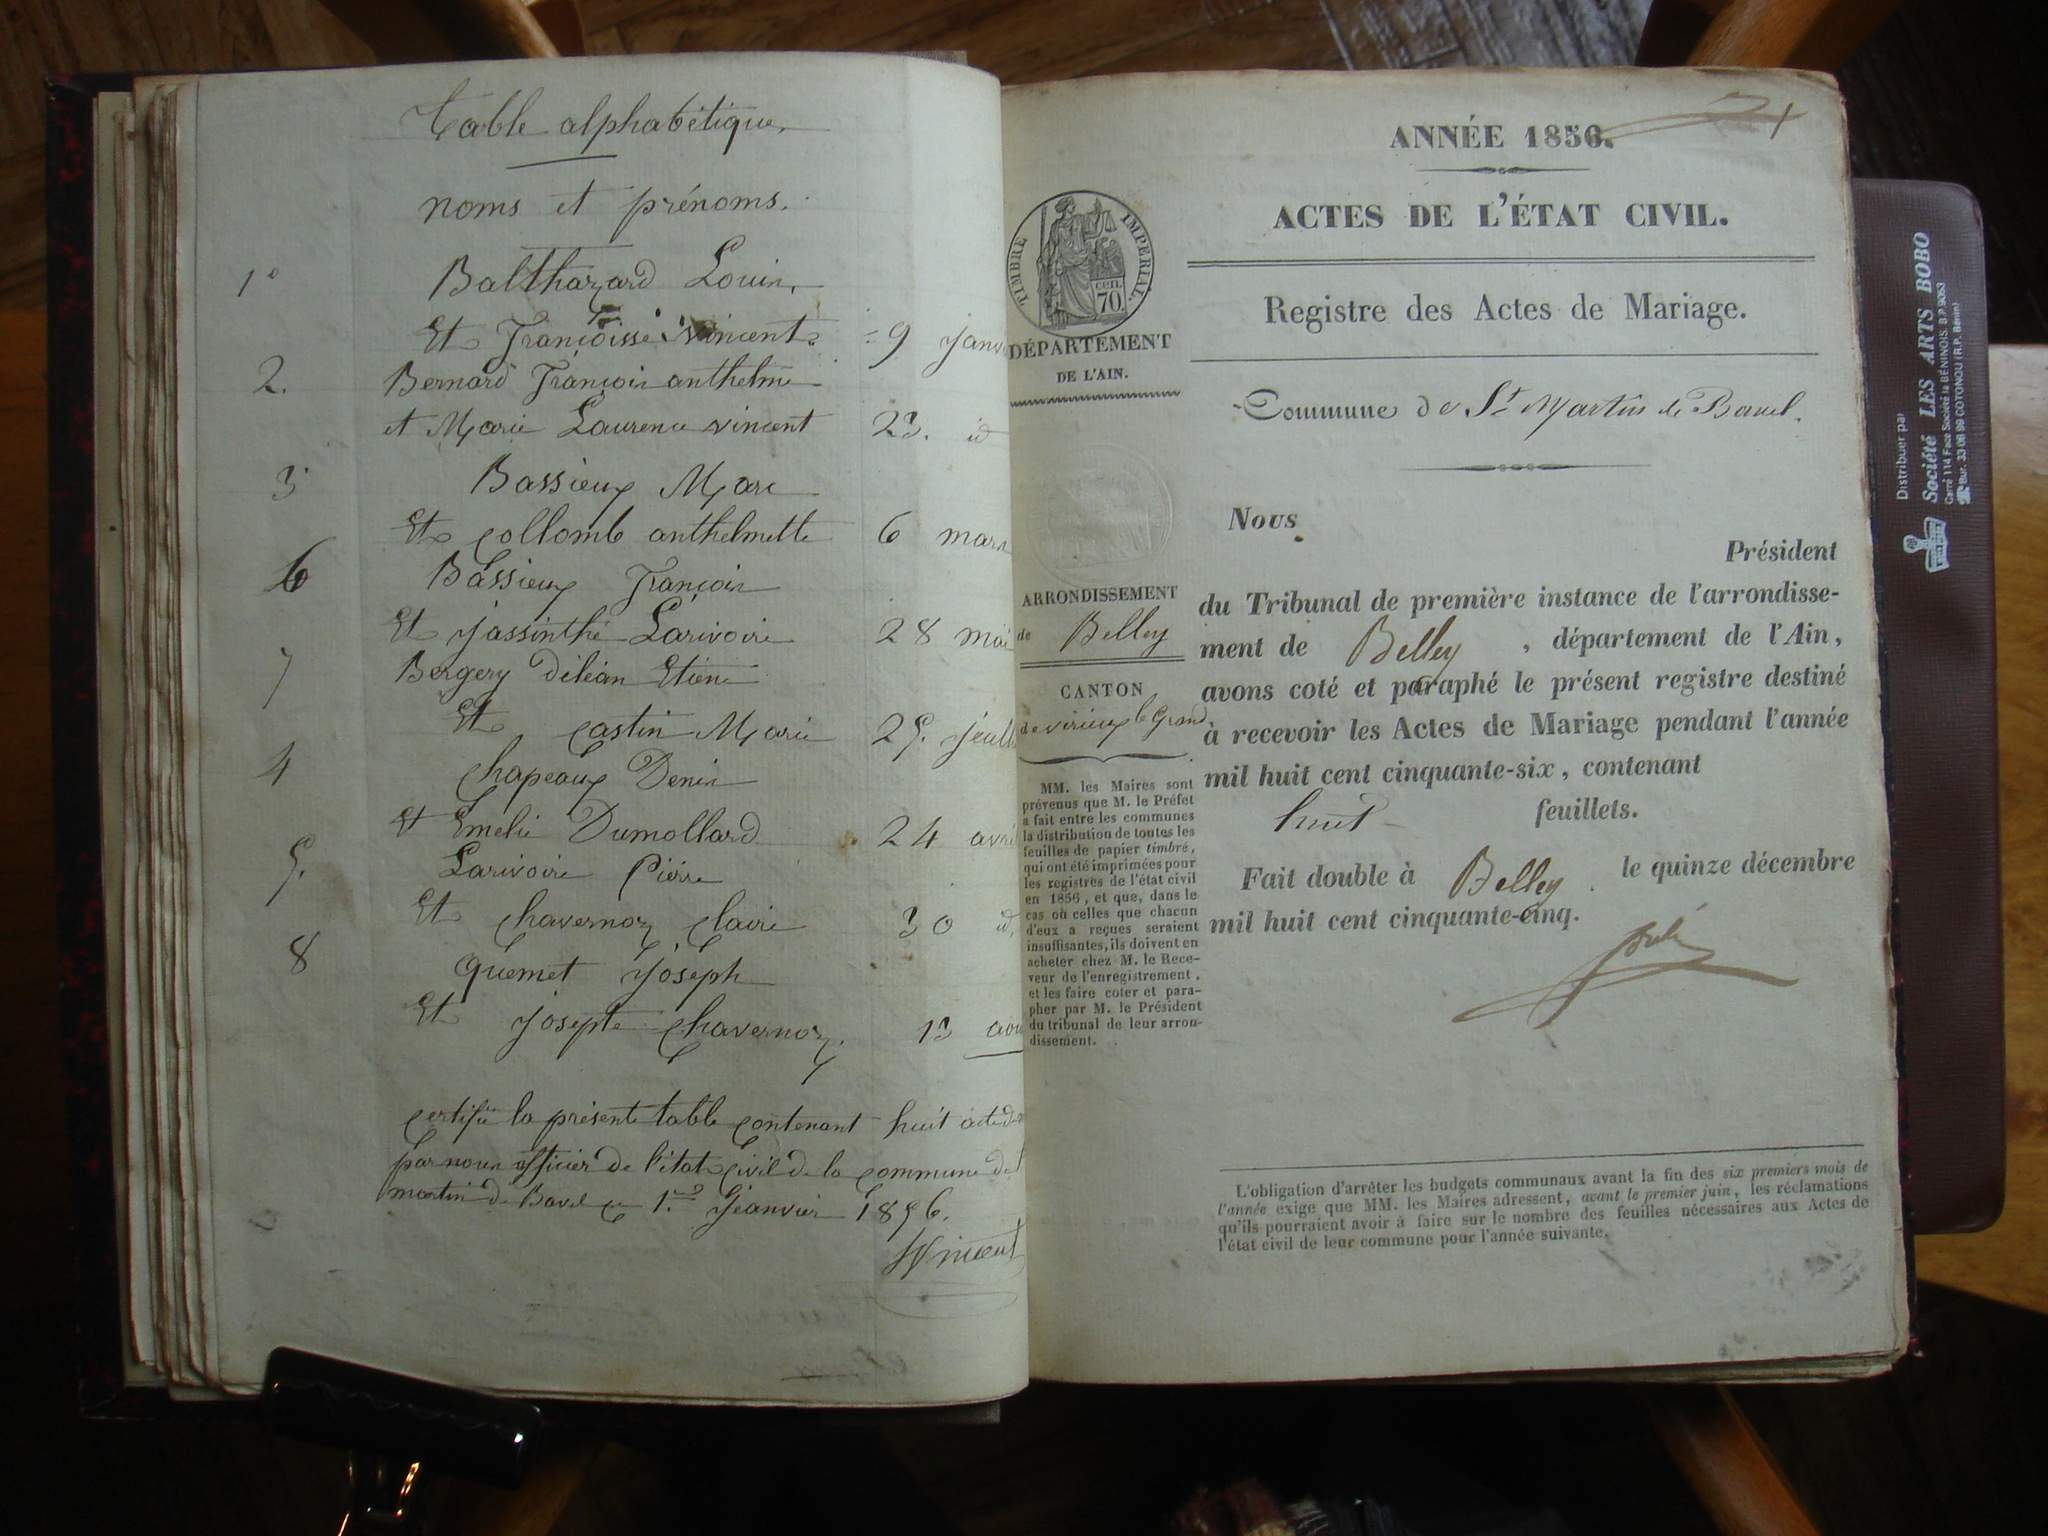 Table alphabétique
noms et prénoms.
1° Balthazard Louis
Et Françoisse vincent = 9 janv
2. Bernard François anthelme
et Marie Laurence vincent 23. id
3 Bassieux Marc
Et Collomb anthelmette 6 mars
6 Bassieux François
Et Jassinthe Larivoire 28 mai
7 Bergery diléan Etiene
Et Castin Marie 25. jeull
4 Chapeaux Denis
Et Emelie Dumollard 24 avri
5. Larivoire Piérre
Et Chavernoz Claire 30 id
8 Quemet Joseph
Et Josepte Chavernoz. 13 aou
Certifié la présente table contenant huit acte de
par nous officier de l'état Civil de la commune de
martin de Bavel ce 1.er Jeanvier 1856.
Vincent
1
ANNÉE 1856.
ACTES DE L'ÉTAT CIVIL.
Registre des Actes de Mariage.
TIMBRE IMPERIAL.
CEN. 70
DÉPARTEMENT
DE L'AIN.
Commune de St Martin de Bavel.
ARRONDISSEMENT
de Belley
CANTON
de virieux le Grand
MM. les Maires sont
prévenus que M. le Préfet
a fait entre les communes
la distribution de toutes les
feuilles de papier timbré,
qui ont été imprimées pour
les registres de l'état civil
en 1856, et que, dans le
cas où celles que chacun
d'eux a reçues seraient
insuffisantes, ils doivent en
acheter chez M. le Rece-
veur de l'enregistrement,
et les faire coter et para-
pher par M. le Président
du tribunal de leur arron-
dissement.
Nous
Président
du Tribunal de première instance de l'arrondisse-
ment de Belley , département de l'Ain,
avons coté et paraphé le présent registre destiné
à recevoir les Actes de Mariage pendant l'année
mil huit cent cinquante-six, contenant
huit feuillets.
Fait double à Belley . le quinze décembre
mil huit cent cinquante-cinq.
L'obligation d'arrêter les budgets communaux avant la fin des six premiers mois de
l'année exige que MM. les Maires adressent, avant le premier juin, les réclamations
qu'ils pourraient avoir à faire sur le nombre des feuilles nécessaires aux Actes de
l'état civil de leur commune pour l'année suivante.
Distribuer par
Société LES ARTS BOBO
Carré 114 Face Société la BÉNINOIS. B.P. 9053
Bur. 33 06 99 COTONOU (R.P. Bénin)